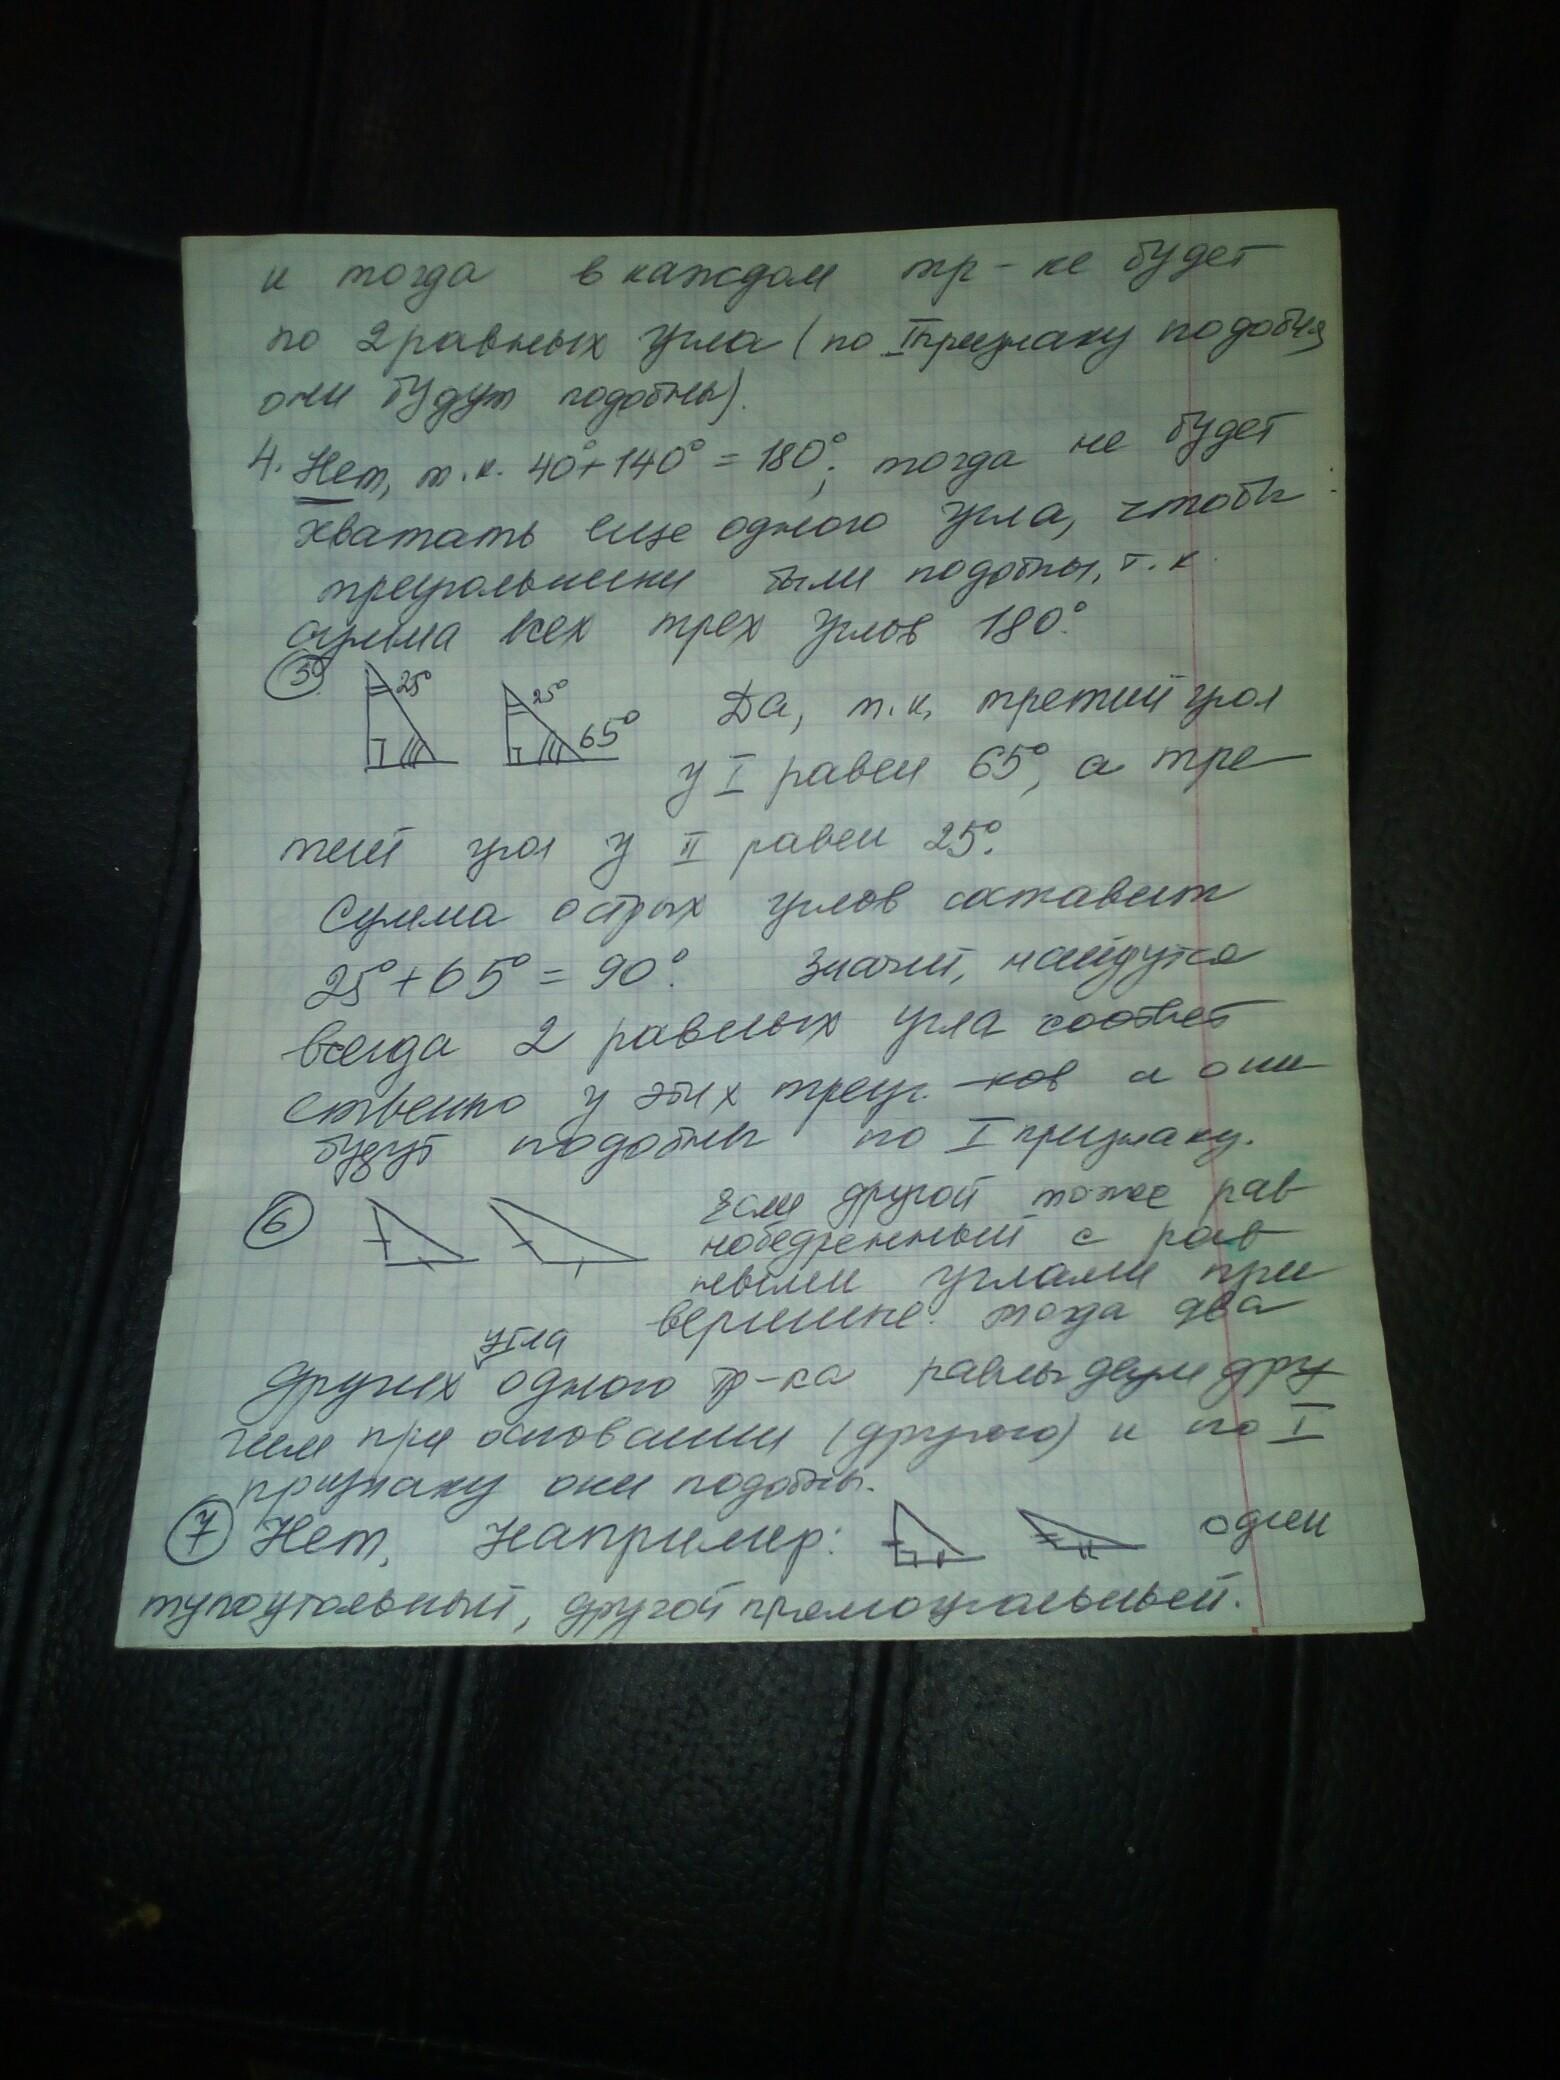 и тогда в каждом тр-ке будет
по 2 равных угла (по I признаку подобия
они будут подобны).
4. Нет, т.к. 40°+140° = 180°, тогда не будет
хватать еще одного угла, чтобы
треугольники были подобны, т.к.
сумма всех трех углов 180°.
5 25° 25° 65° Да, т.к. третий угол
у I равен 65°, а тре
тий угол у II равен 25°.
Сумма острых углов составит
25°+65° = 90°. Значит, найдутся
всегда 2 равных угла соответ
ственно у этих треуг-ков и они
будут подобны по I признаку.
6 Если другой тоже рав
нобедренный с рав
ными углами при
вершине. тогда два
угла
других одного тр-ка равны двум дру
гим при основании (другого) и по I
признаку они подобны.
7 Нет, Например: один
тупоугольный, другой прямоугольный.